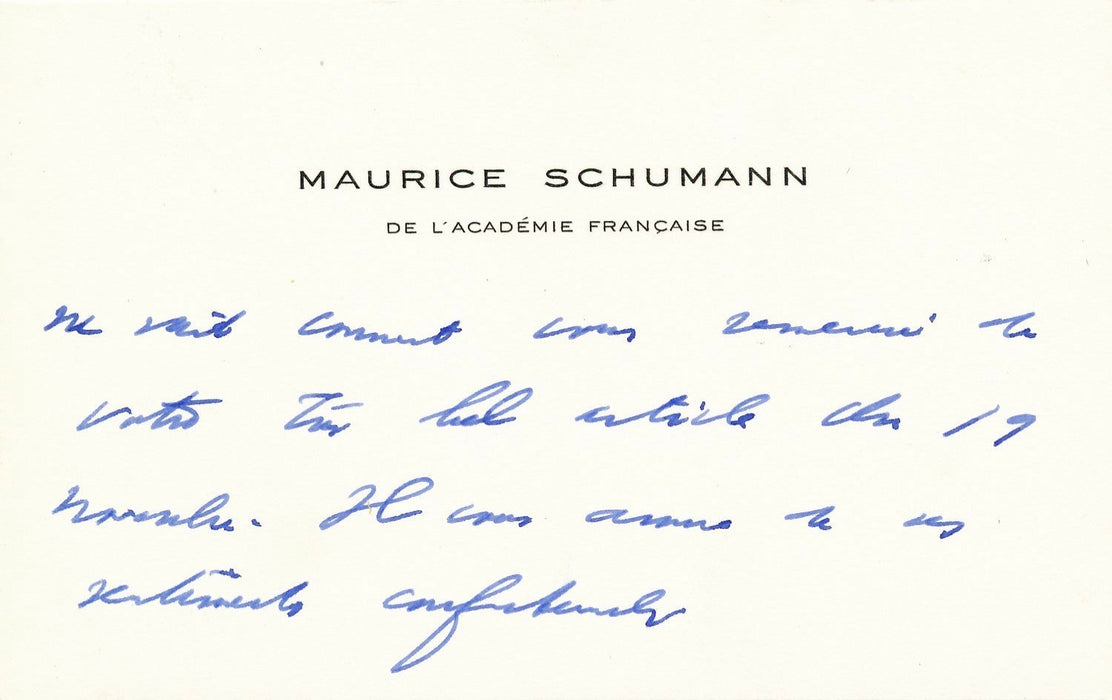 MAURICE SCHUMANN
DE L'ACADÉMIE FRANÇAISE
ne sait comment vous remercier de
votre très bel article du 19
novembre. Il vous assure de ses
sentiments